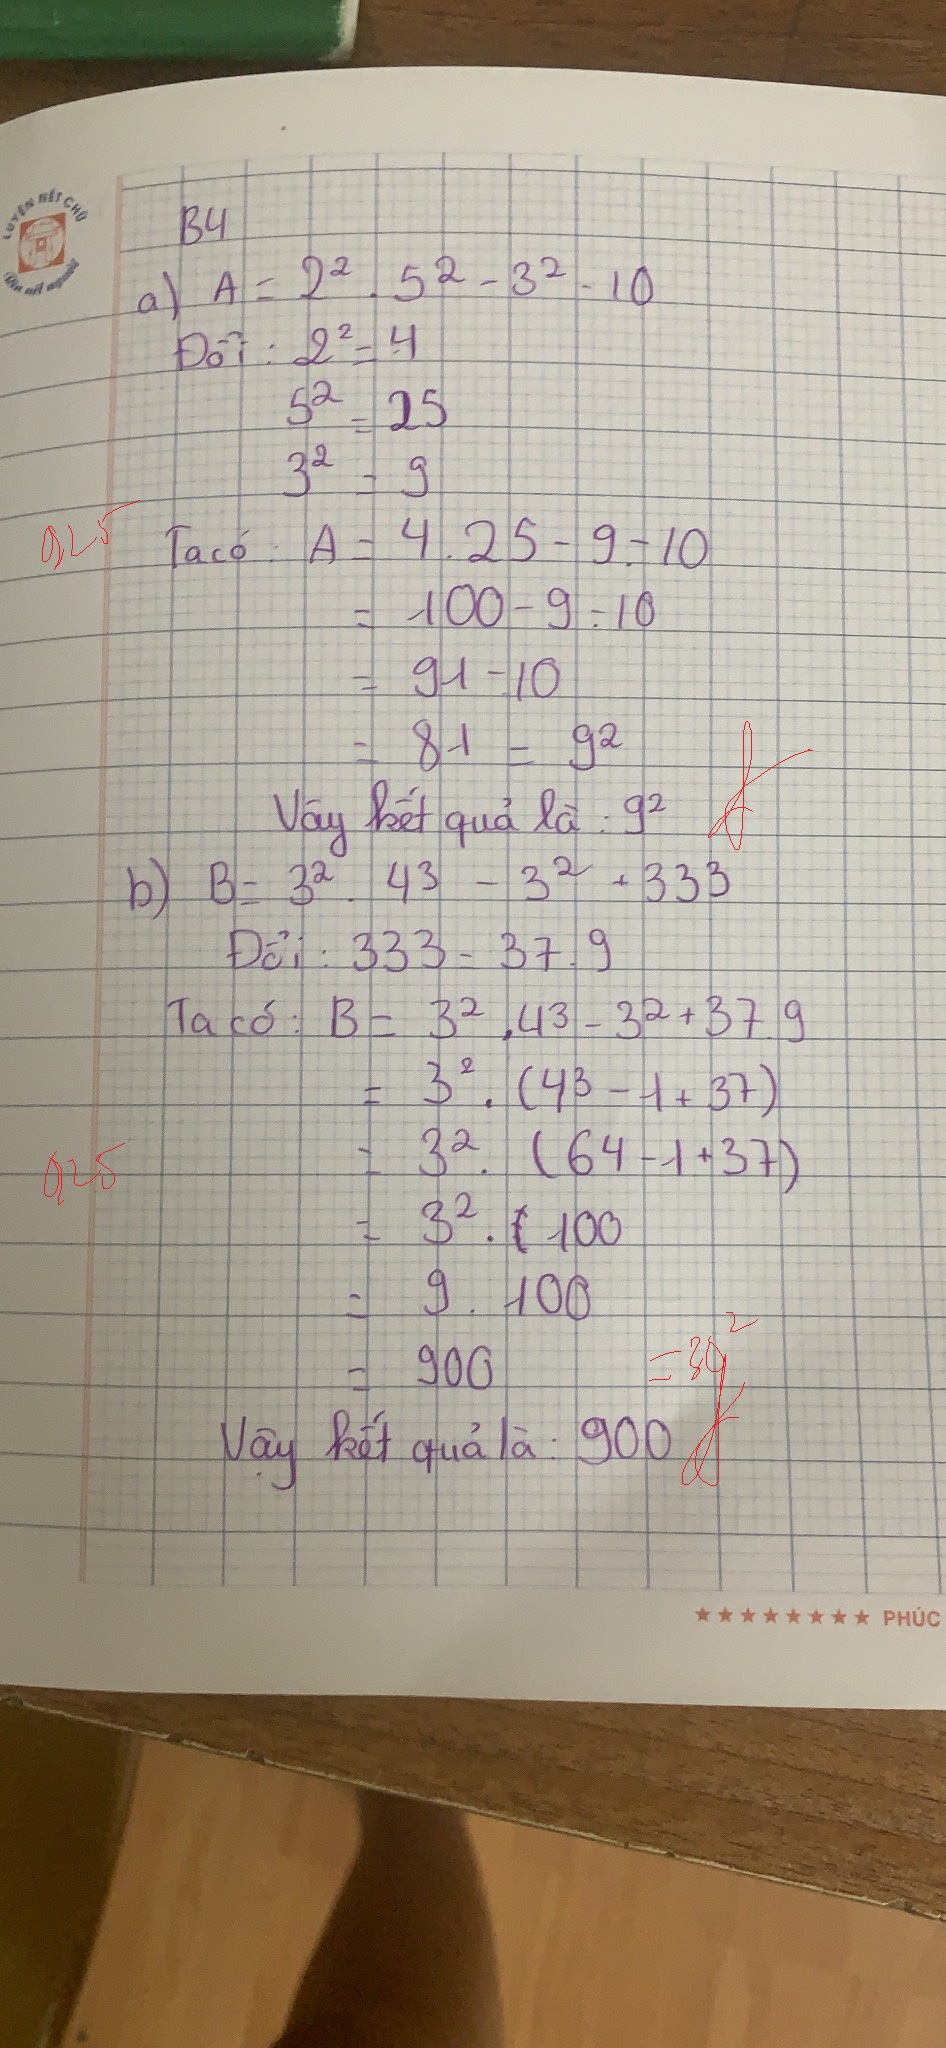 LUYỆN NÉT CHỮ
Rèn nết người
B4
a) A = 2² . 5² - 3² - 10
Đổi : 2² = 4
5² = 25
3² = 9
0,25
Ta có : A = 4 . 25 - 9 - 10
= 100 - 9 - 10
= 91 - 10
= 81 = 9²
Vậy kết quả là : 9²
b) B = 3² . 4³ - 3² + 333
Đổi : 333 = 37 . 9
Ta có : B = 3² . 4³ - 3² + 37 . 9
= 3² . (4³ - 1 + 37)
= 3² . (64 - 1 + 37)
0,25
= 3² . ( 100
= 9 . 100
= 900 = 30²
Vậy kết quả là : 900
★★★★★★★★ PHÚC